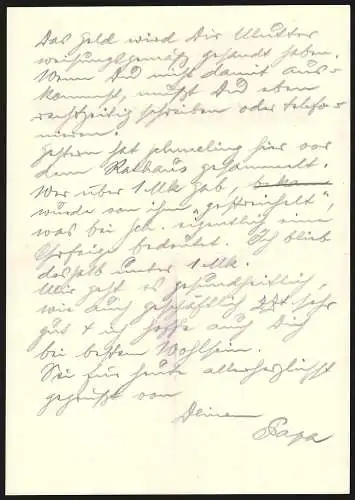 Das Geld wird Dir Mutter
weisungsgemäß gesandt haben.
Wenn Du nicht damit aus-
kommst, mußt Du eben
rechtzeitig schreiben oder telefo-
nieren.
Gestern hat Schmeling hier vor
dem Rathaus gesammelt.
Wer über 1 Mk gab, bekam
wurde von ihm "gestreichelt"
was bei Sch. eigentlich eine
Ohrfeige bedeutet. Ich blieb
deshalb unter 1 Mk.
Mir geht es gesundheitlich,
wie auch geschäftlich sehr
gut + ich hoffe auch Dich
bei bestem Wohlsein.
Sei für heute allerherzlichst
gegrüßt von
Deinem
Papa